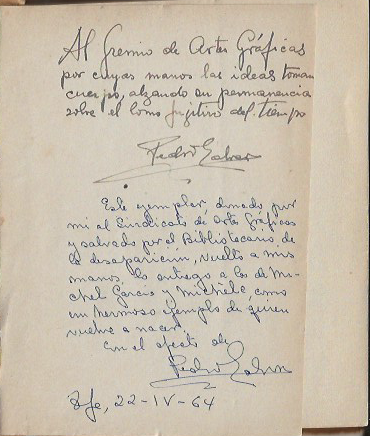 Al Gremio de Artes Gráficas
por cuyas manos las ideas toman
cuerpo, alzando su permanencia
sobre el lomo fugitivo del tiempo
Pedro
Este ejemplar, donado por
mí al Sindicato de Artes Gráficas
y salvado por el Bibliotecario de
la desaparición, vuelto a mis
manos, lo entrego a las de Mi-
chel García y Michèle, como
un hermoso ejemplo de quien
vuelve a nacer.
Con el afecto de
Pedro
22-IV-64